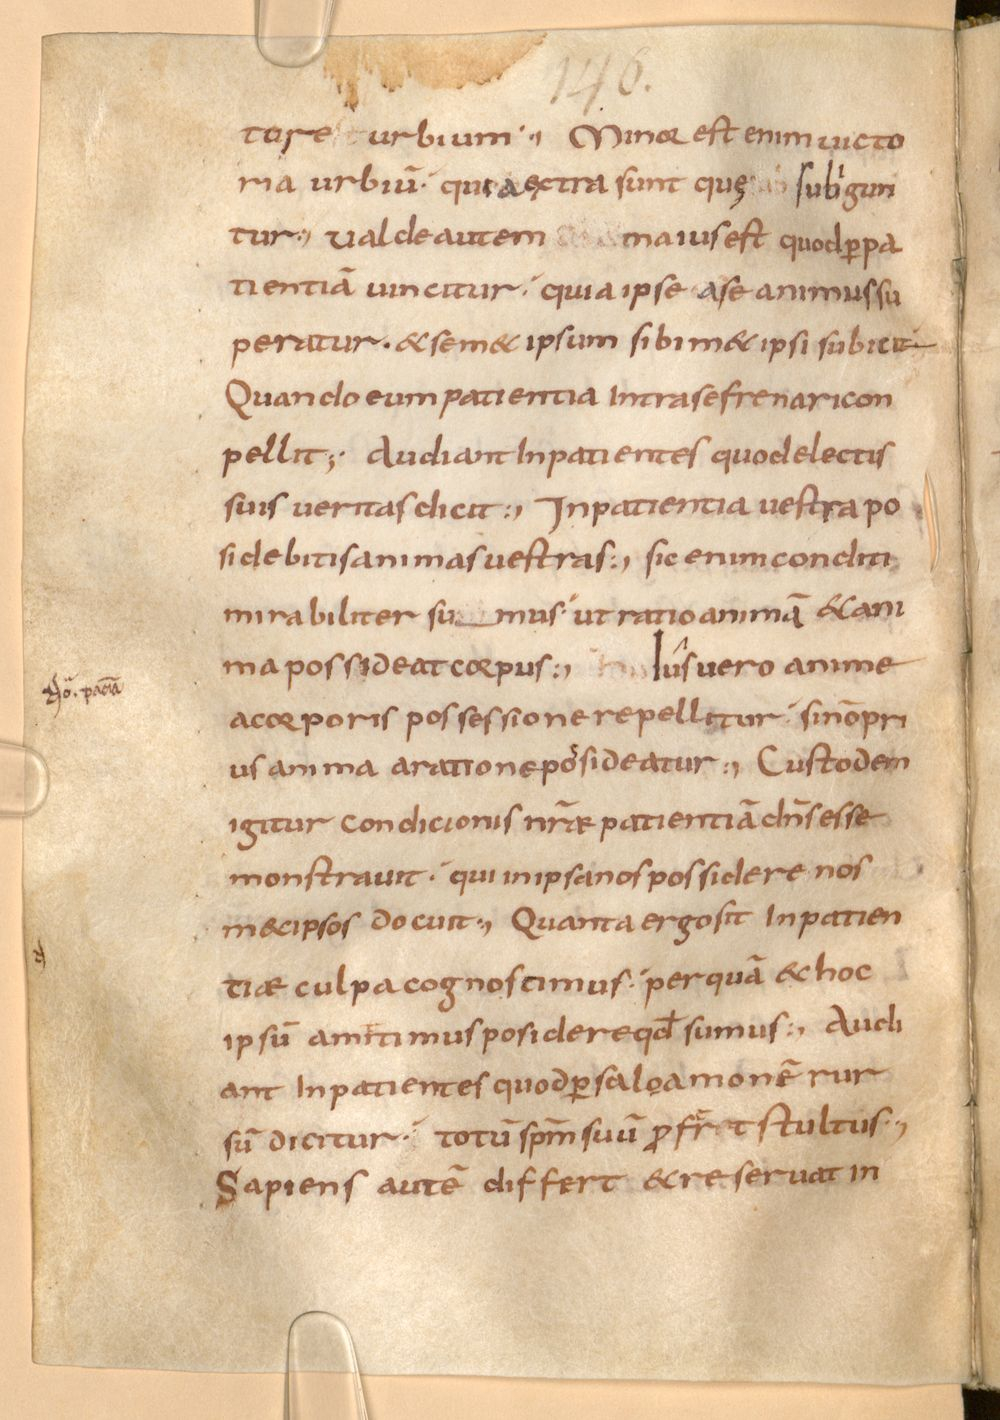 146.
tore urbium·, Minor est enim victo
ria urbiū· quia extra sunt quę subigun
tur·, valde autem maius est quod ꝑ pa
tientiā vincitur· quia ipse a se animus su
peratur· & sem&ipsum sibim&ipsi subicit
Quando eum patientia Intra se frenari con
pellit;· Audiant Inpatientes quod electis
suis veritas dicit:, In patientia vestra po
sidebitis animas vestras:, sic enim conditi
mirabiliter su mus· ut ratio animā & ani
ma possideat corpus:, Ius vero anime
a corporis possessione repellitur· si nō pri
us anima a ratione posideatur:, Custodem
igitur condicionis nr̄ae patientiā dn̄s esse
monstravit· qui in ipsa nos possidere nos
m&ipsos docuit:, Quanta ergo sit Inpatien
tiae culpa cognoscimus· per quā & hoc
ipsū amittimus posidere qd̄ sumus:, Audi
ant Inpatientes quod ꝑ saloamonē rur
sū dicitur· totū sp̄m suū ꝓfret stultus·,
Sapiens autē differt & reservat in
No. pacia